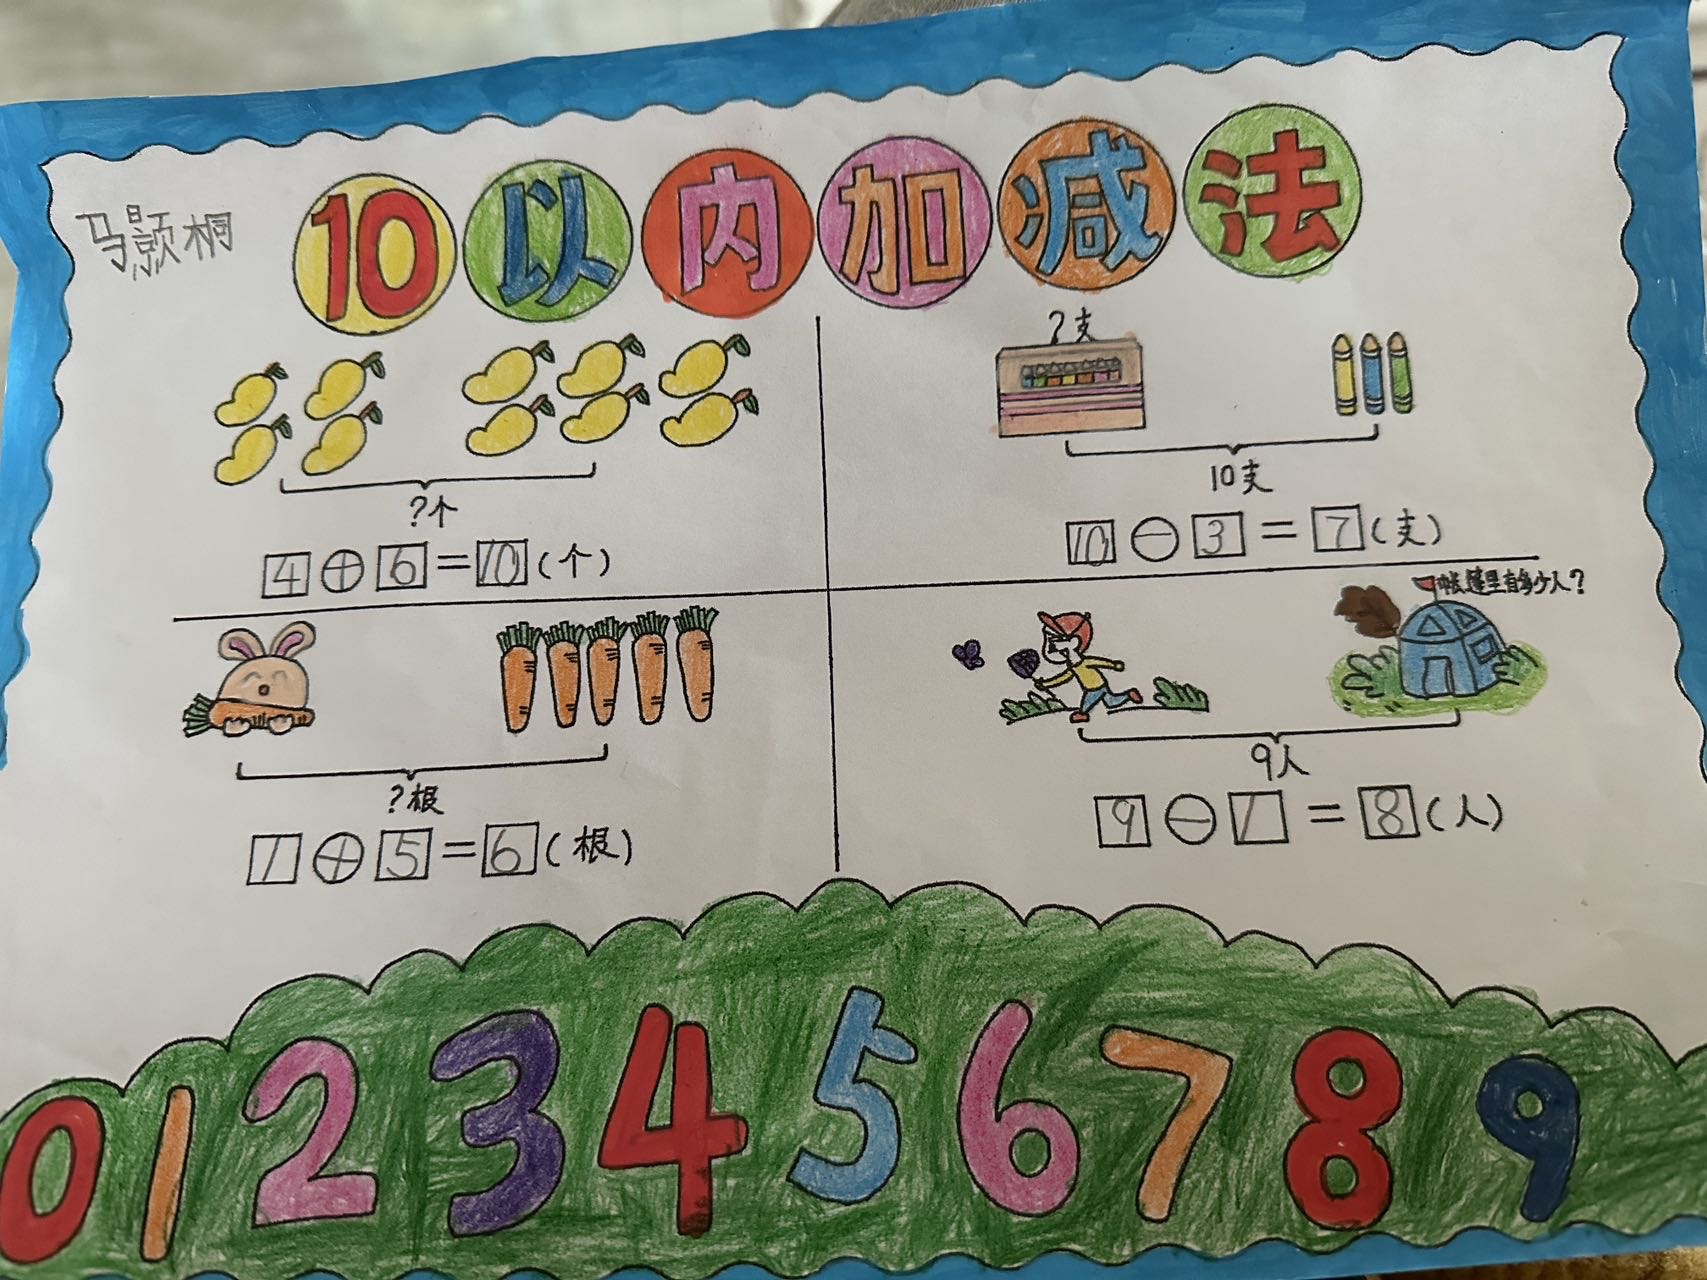 10以内加减法
马颢桐
?个
4+6=10(个)
?支
10支
10-3=7(支)
?根
1+5=6(根)
帐篷里有多少人?
9人
9-1=8(人)
0 1 2 3 4 5 6 7 8 9